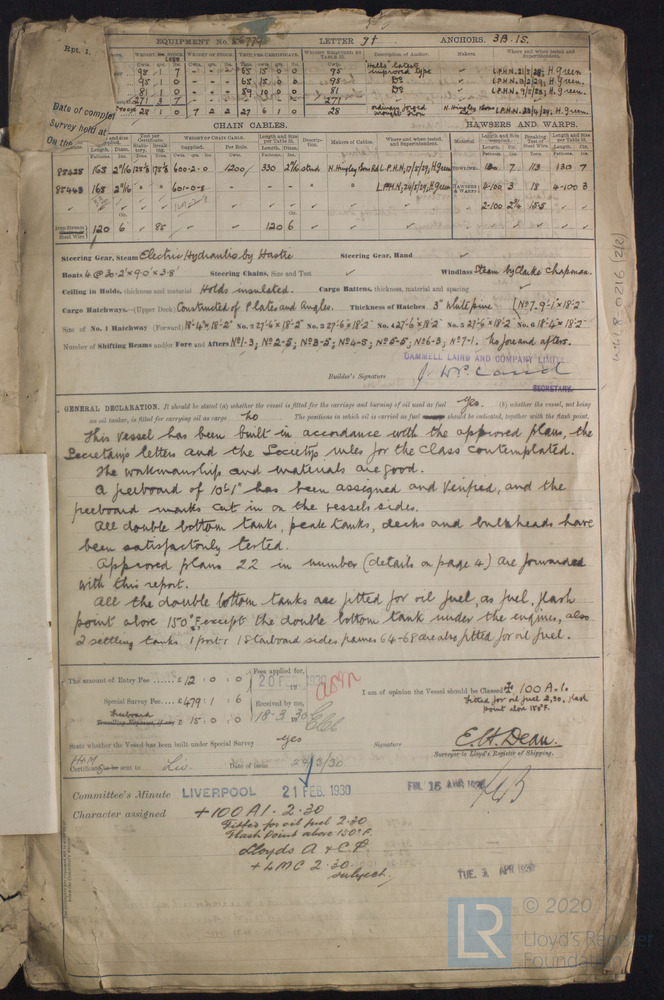 Rpt. 1.
EQUIPMENT No. LETTER g† ANCHORS. 3B. 1S.
WEIGHT EX. STOCK WEIGHT OF STOCK TEST, PER CERTIFICATE. WEIGHT REQUIRED BY TABLE 31. Description of Anchor. Makers Where and when tested and Superintendent.
95 1 7 - - - 65 15 0 0 95 Halls latest improved type L.P.H.N. H. Green
95 1 0 - - - 65 15 0 0 95 Do L.P.H.N. H. Green
81 1 0 - - - 59 10 0 0 81 Do L.P.H.N. H. Green
271 3 7 271
28 1 0 7 2 2 27 6 1 0 28 ordinary forged wrought iron N. Hingley L.P.H.N. H. Green
Date of comple
Survey held at
On the
CHAIN CABLES. HAWSERS AND WARPS.
85425 165 2 9/16 600-2-0 1200 330 2 9/16 studs N. Hingley & Sons Ltd L.P.H.N. 17/5/29, H. Green TOWLINE 130 7 113 130 7
85443 165 2 9/16 " " 601-0-8 L.P.H.N. 24/5/29, H. Green HAWSERS & WARPS 4-100 3 18 4-100 3
2-100 2 3/4 15.5
Iron Stream Steel Wire 120 6 85 120 6
Steering Gear, Steam Electric Hydraulic by Hastie Steering Gear, Hand
Boats 4 @ 30.2" x 9.0" x 3.8" Steering Chains, Size and Test Windlass Steam by Clarke Chapman.
Ceiling in Holds, thickness and material Holds insulated. Cargo Battens, thickness, material and spacing
Cargo Hatchways.—(Upper Deck) Constructed of Plates and Angles. Thickness of Hatches 3" white pine (No 7. 9'-1" x 18'-2"
Size of No. 1 Hatchway (Forward) 18'-4" x 18'-2" No. 2 27'-6" x 18'-2" No. 3 27'-6" x 18'-2" No. 4 27'-6" x 18'-2" No. 5 27'-6" x 18'-2" No. 6 18'-4" x 18'-2"
Number of Shifting Beams and/or Fore and Afters No 1-3; No 2-5; No 3-5; No 4-5; No 5-5; No 6-3; No 7-1. No fore and afters.
CAMMELL LAIRD AND COMPANY LIMITED
Builder's Signature
SECRETARY.
GENERAL DECLARATION. It should be stated (a) whether the vessel is fitted for the carriage and burning of oil used as fuel Yes. (b) whether the vessel, not being
an oil tanker, is fitted for carrying oil as cargo No The positions in which oil is carried as fuel should be indicated, together with the flash point.
This vessel has been built in accordance with the approved plans, the
Secretarys letters and the Societys rules for the Class contemplated.
The workmanship and materials are good.
A freeboard of 10'-1" has been assigned and verified, and the
freeboard marks cut in on the vessels sides.
All double bottom tanks, peak tanks, decks and bulkheads have
been satisfactorily tested.
Approved plans 22 in number (details on page 4) are forwarded
with this report.
All the double bottom tanks are fitted for oil fuel, as fuel, flash
point above 150°F, except the double bottom tank under the engines, also
2 settling tanks 1 port & 1 starboard sides frames 64-68 are also fitted for oil fuel.
The amount of Entry Fee ... £ 12 : 0 : 0
Fees applied for,
20 FEB 1930
Special Survey Fee.... £ 479 : 1 : 6
Received by me,
Freeboard
Travelling Expenses, if any £ 15 : 0 : 0
18-3-30
I am of opinion the Vessel should be Classed + 100 A.1.
Fitted for oil fuel 2,30, flash
point above 150°F.
State whether the Vessel has been built under Special Survey yes
Signature E. H. Dean.
Surveyor to Lloyd's Register of Shipping.
Certificate to be sent to Liv. Date of issue
Committee's Minute LIVERPOOL 21 FEB. 1930
Character assigned +100 A1 - 2.30
Fitted for oil fuel 2.30
Flash Point above 150° F.
Lloyds A & C P
+ LMC 2.30
subject
TUE. APR 1930
W418-0216 (2/2)
LR
© 2020
Lloyd's Register
Foundation